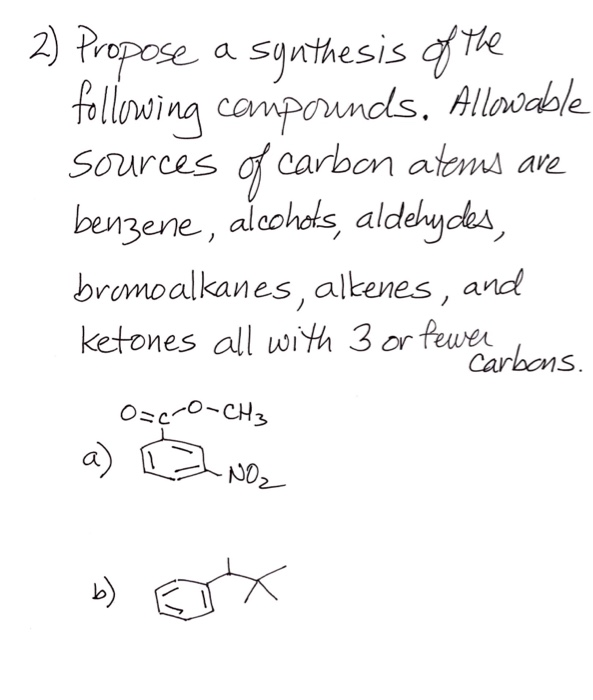 2) Propose a synthesis of the
following compounds. Allowable
sources of carbon atoms are
benzene, alcohols, aldehydes,
bromoalkanes, alkenes, and
ketones all with 3 or fewer
carbons.
O=C-O-CH3
a)
-NO2
b)